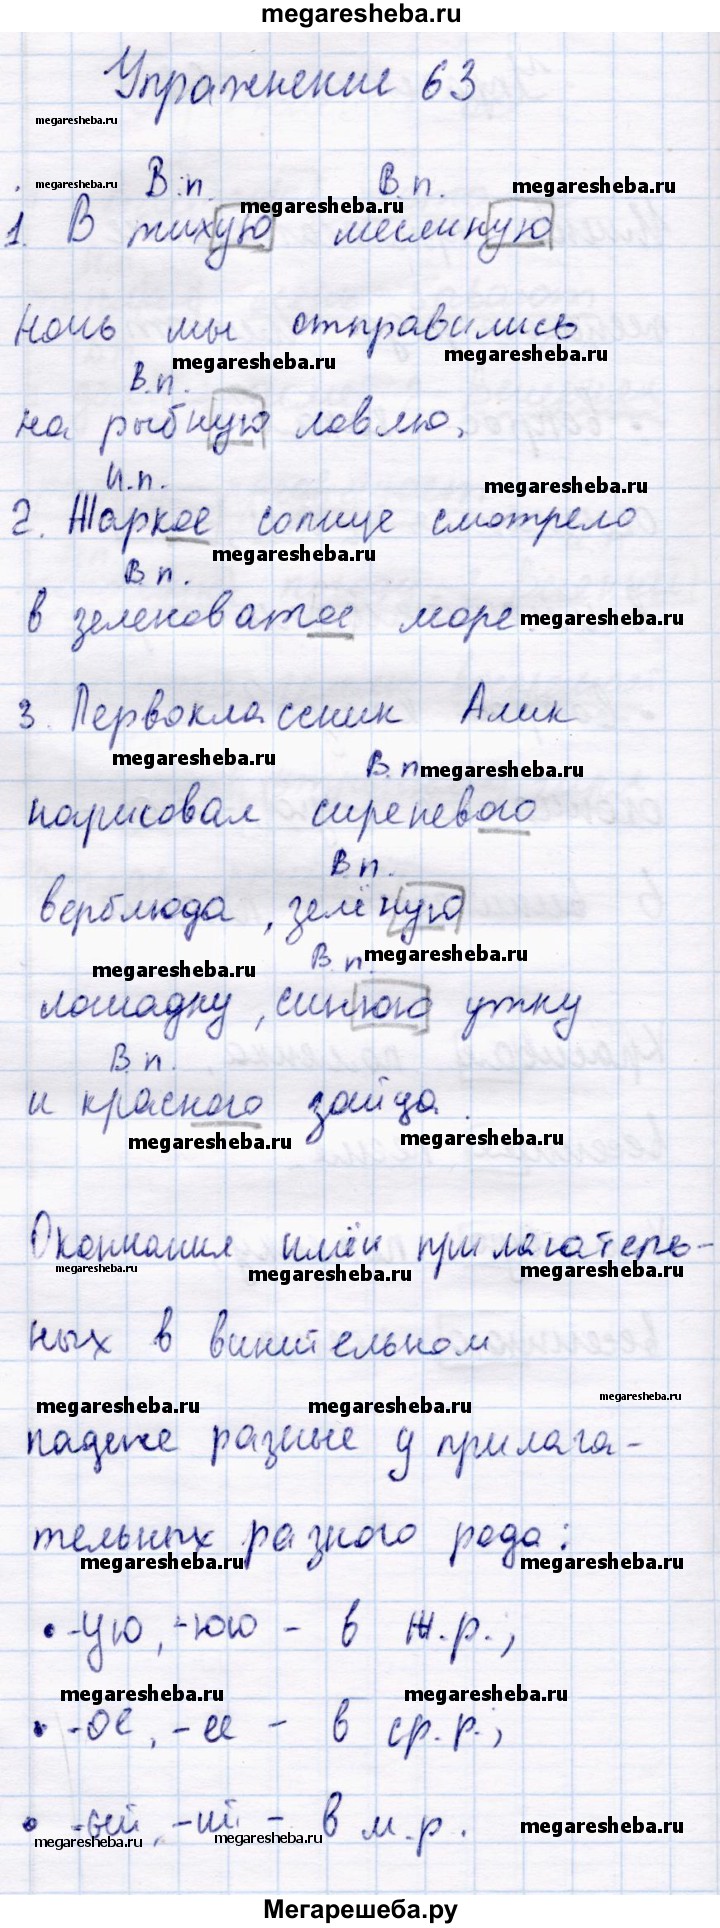 megaresheba.ru
Упражнение 63
megaresheba.ru
megaresheba.ru В.п. В.п. megaresheba.ru
megaresheba.ru
1. В тихую месячную
ночь мы отправились
megaresheba.ru megaresheba.ru
В.п.
на рыбную ловлю.
И.п. megaresheba.ru
2. Жаркое солнце смотрело
megaresheba.ru
В.п.
в зеленоватое море. megaresheba.ru
3. Первоклассник Алик
megaresheba.ru В.п. megaresheba.ru
нарисовал сиреневого
В.п.
верблюда, зелёную
megaresheba.ru В.п. megaresheba.ru
лошадку, синюю утку
В.п.
и красного зайца.
megaresheba.ru megaresheba.ru
Окончания имён прилагатель-
megaresheba.ru megaresheba.ru megaresheba.ru
ных в винительном
megaresheba.ru megaresheba.ru megaresheba.ru
падеже разные у прилага-
тельных разного рода:
megaresheba.ru megaresheba.ru
• -ую, -юю - в ж.р.;
megaresheba.ru megaresheba.ru
• -ое, -ее - в ср.р.;
• -ый, -ий - в м.р.
megaresheba.ru megaresheba.ru megaresheba.ru
Мегарешеба.ру